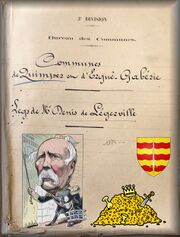 3e DIVISION
Bureau des Communes.
Communes
de Quimper et d'Ergué-Gabéric
Legs de Mr Denis de Legerville